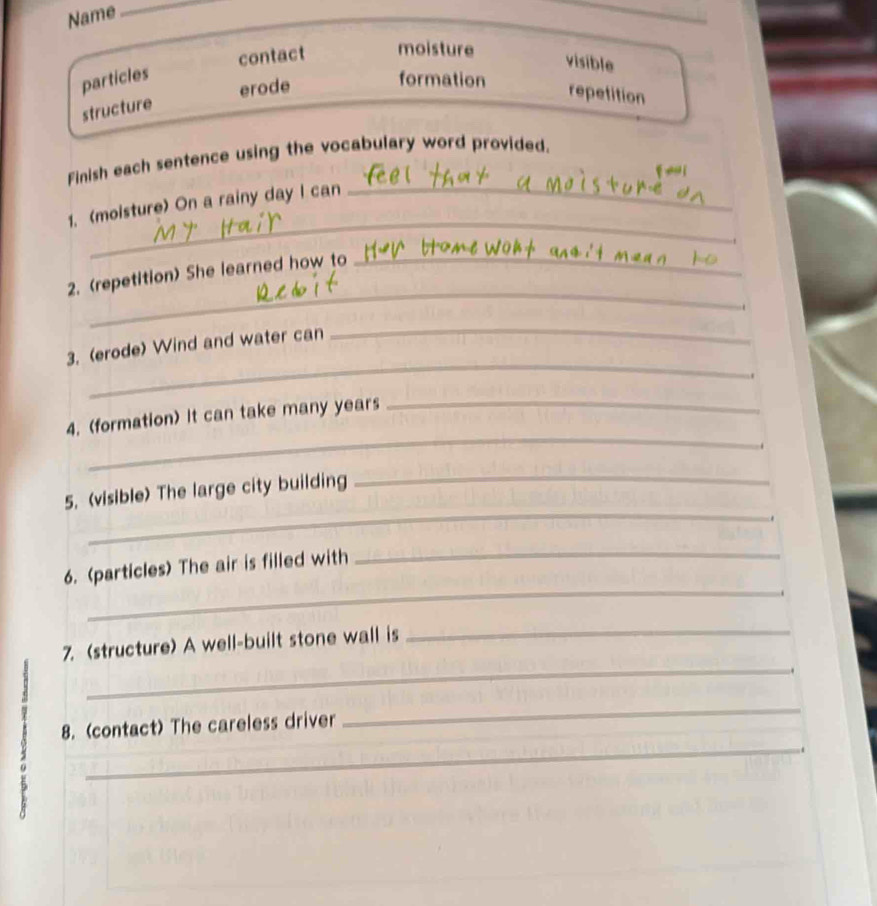 Name
particles contact moisture visible
structure erode formation repetition
Finish each sentence using the vocabulary word provided.
1. (moisture) On a rainy day I can feel that a moisture on
My Hair
2. (repetition) She learned how to Her Home wont and it mean to
Redoit
3. (erode) Wind and water can
4. (formation) It can take many years
5. (visible) The large city building
6. (particles) The air is filled with
7. (structure) A well-built stone wall is
8. (contact) The careless driver
Copyright © McGraw-Hill Education